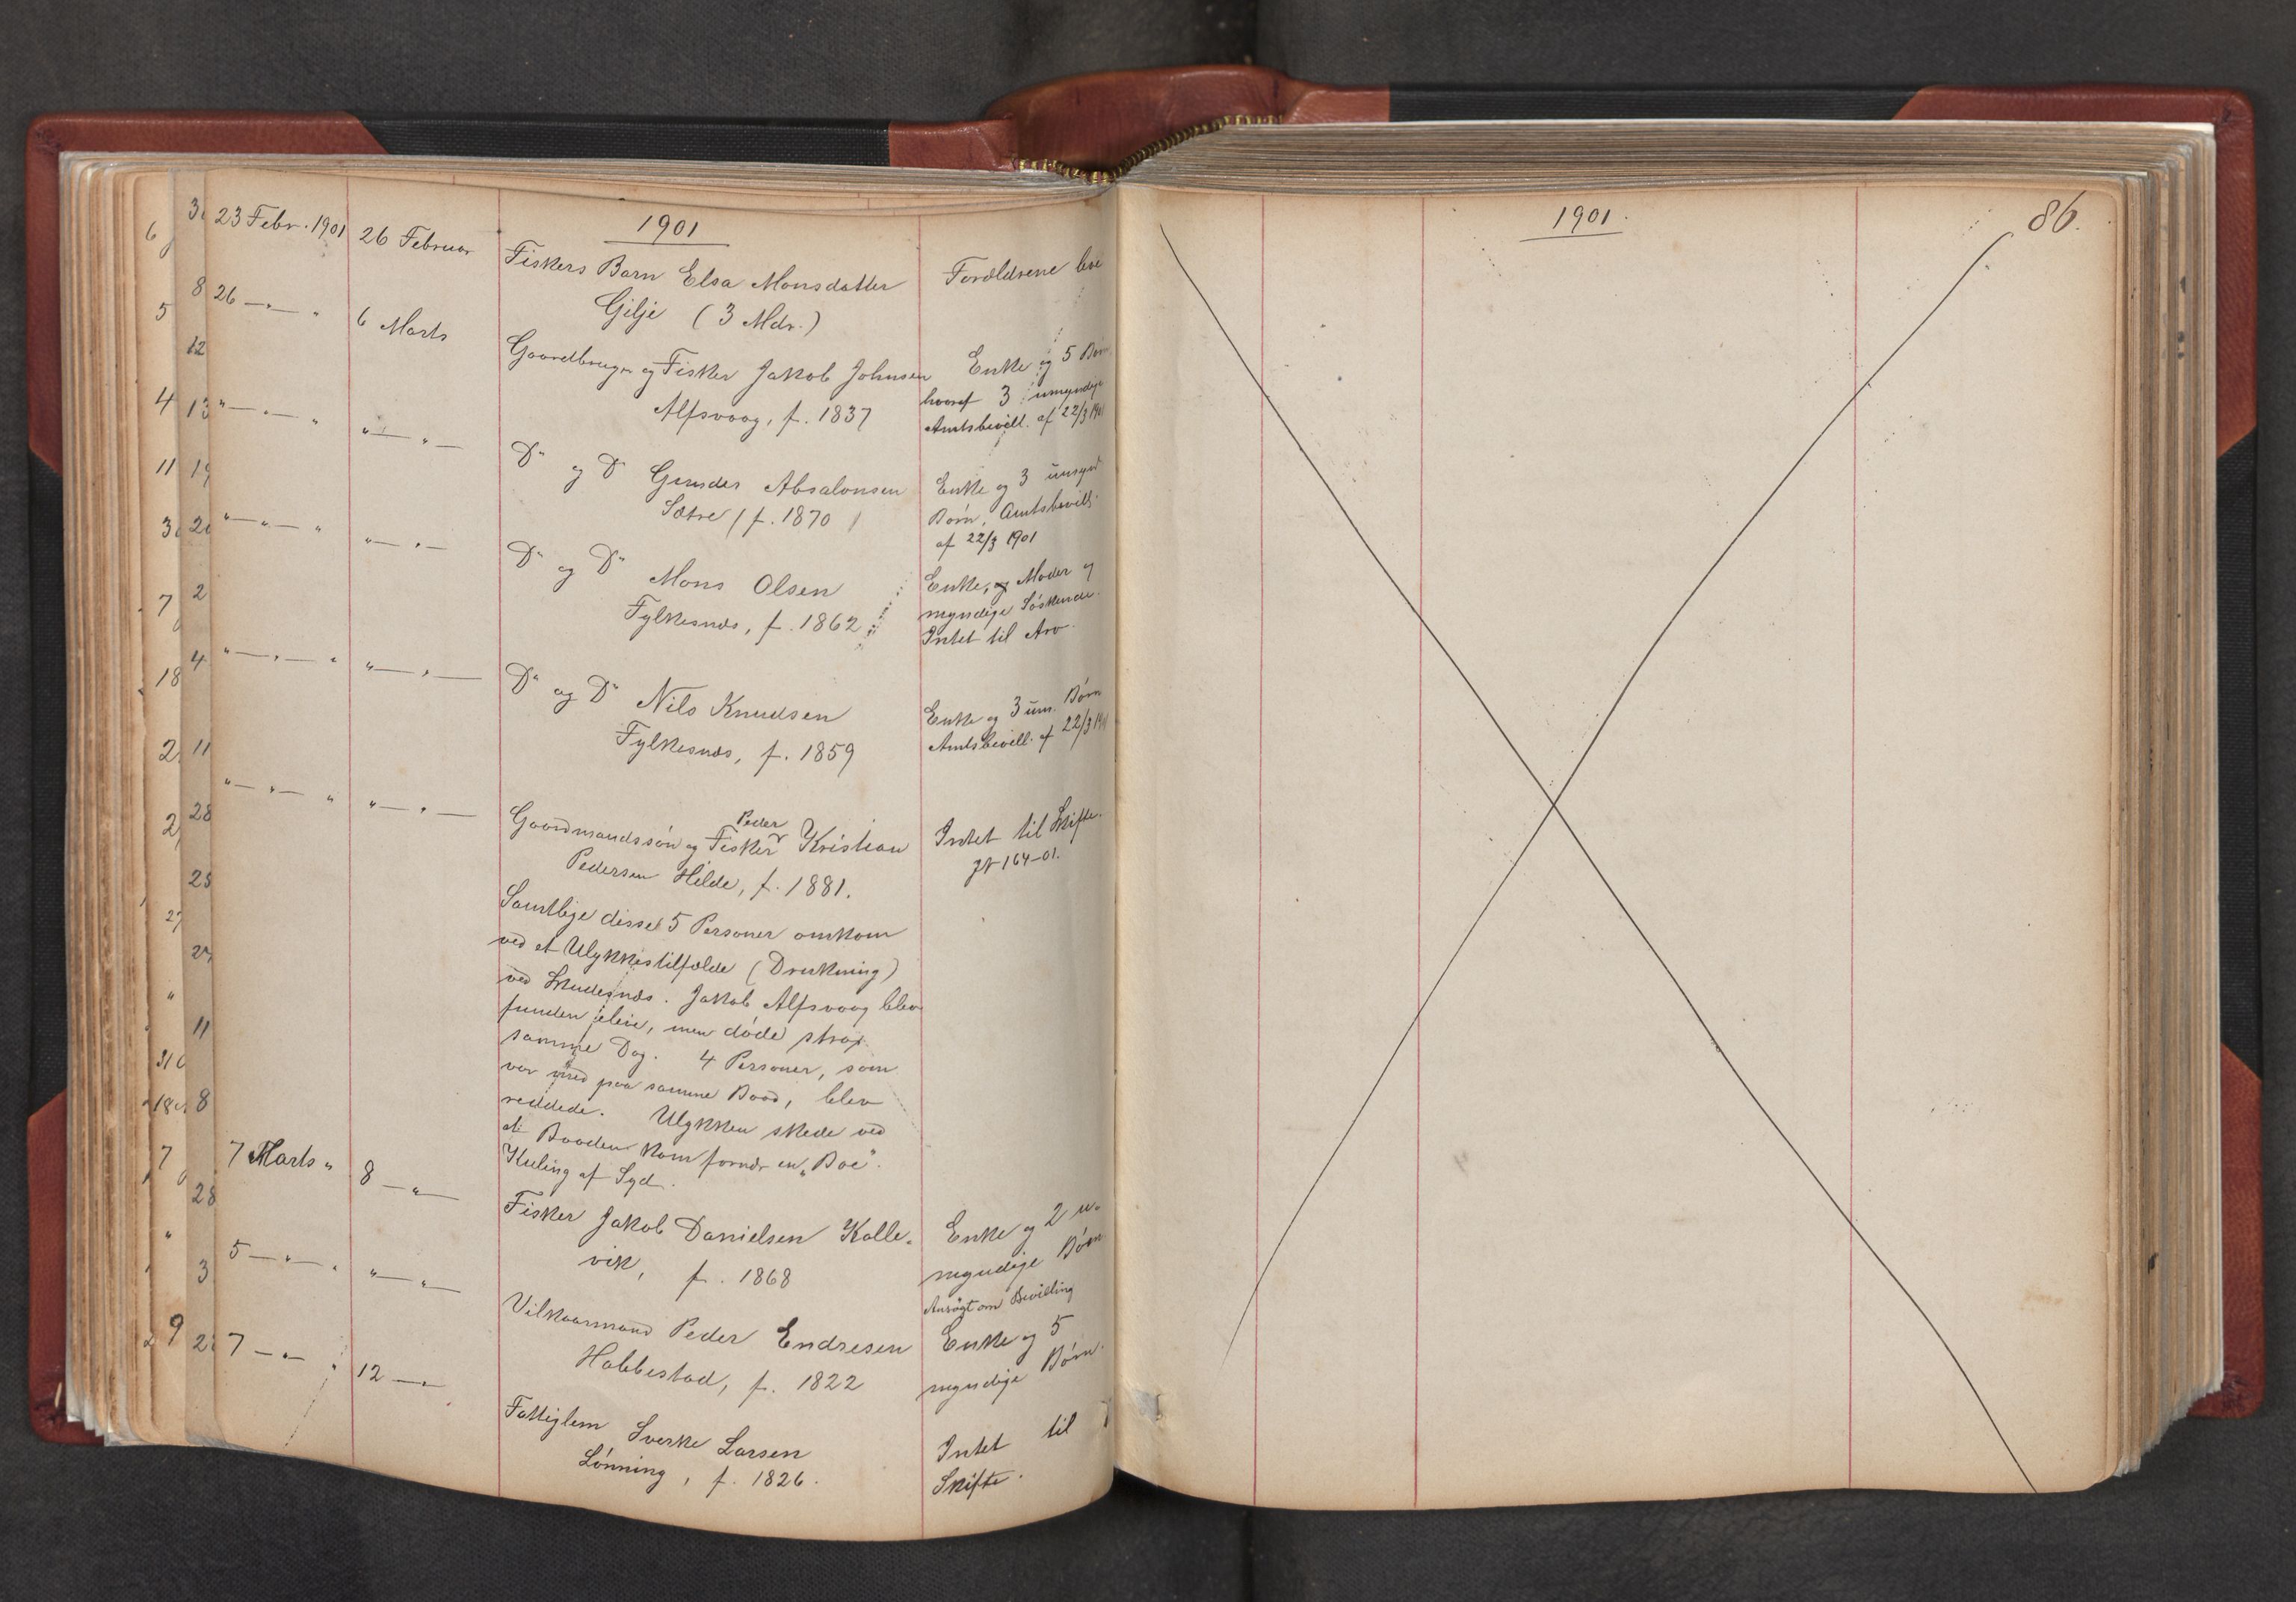 1901
23 Febr. 1901
26 Februar
Fiskers Barn Elsa Monsdatter
Gilje (3 Mdr.)
Forældrene leve
26 — " — "
6 Marts
Gaardbruger og Fisker Jakob Johnsen
Alfsvaag, f. 1837
Enke og 5 Børn
hvoraf 3 umyndige
Amtsbevill. af 22/3 1901
" — " — "
" — " —
Do og Do Absalonsen
Sætre (f. 1870)
Enke og 3 umynd
Børn, Amtsbevill.
af 22/3 1901
" — " — "
" — " —
Do og Do Mons Olsen
Fylkesnæs, f. 1862
Enke, og Moder og
myndige Söskende.
Intet til Arv.
" — " — "
" — " —
Do og Do Nils Knudsen
Fylkesnæs, f. 1859
Enke og 3 um. Børn
Amtsbevill. af 22/3 1901
" — " — "
" — " —
Peder
Gaardmandssön og Fisker Kristian
Pedersen Hilde, f. 1881.
Intet til Skifte.
JN 164-01.
Samtlige disse 5 Personer omkom
ved et Ulykkestilfælde (Drukning)
ved Skudesnæs. Jakob Alfsvaag blev
funden ilive, men döde strax
samme Dag. 4 Personer, som
var med paa samme Baad, blev
reddede. Ulykken skede ved
at Baaden kom fornær en „Boe".
Kuling af Syd.
7 Marts "
8 — " —
Fisker Jakob Danielsen Kalle-
vik, f. 1868
Enke og 2 u-
myndige Børn
Ansögt om Bevilling
5 — " — "
" — " —
Vilkaarmand Peder Endresen
Habbestad, f. 1822
Enke og 5
myndige Børn.
7 — " —
12 — " —
Fattiglem Sverke Larsen
Lønning, f. 1826.
Intet til
Skifte.
1901.
86.